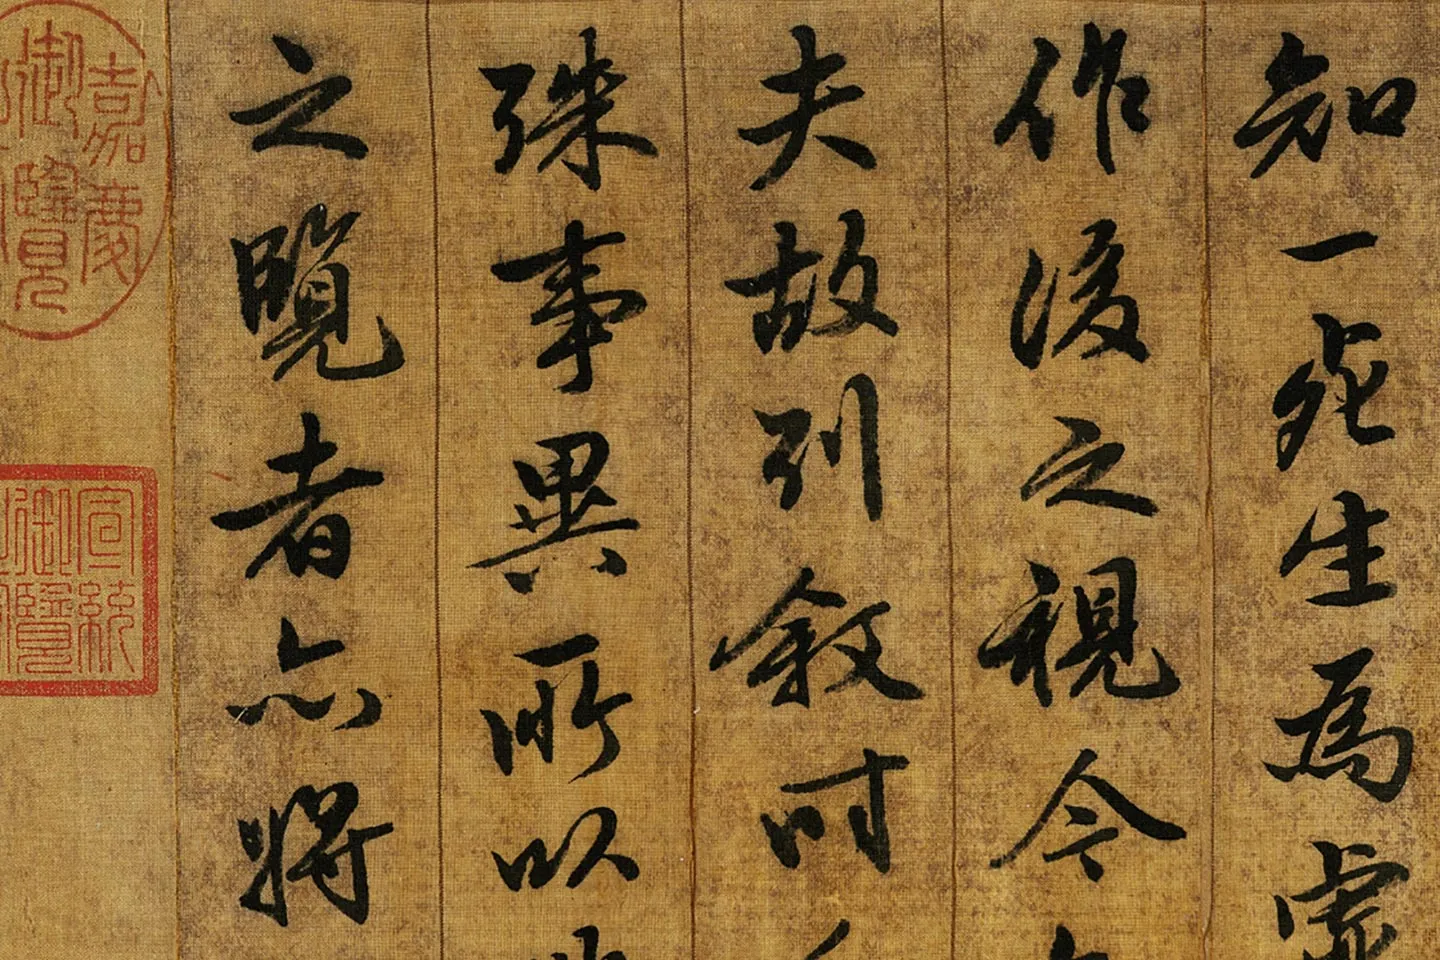 知一死生為虛
作後之視今
夫故列叙時
殊事異所以
之覽者亦將
嘉慶御覽
宣統御覽